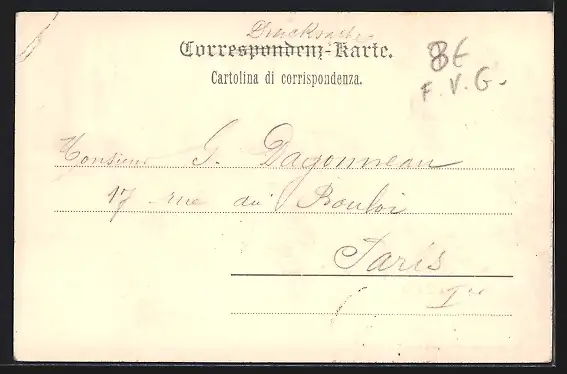 Drucksache
Correspondenz-Karte.
Cartolina di corrispondenza.
8€
F.V.G.
Monsieur G. Dagonneau
17 rue du Bouloi
Paris
Ier